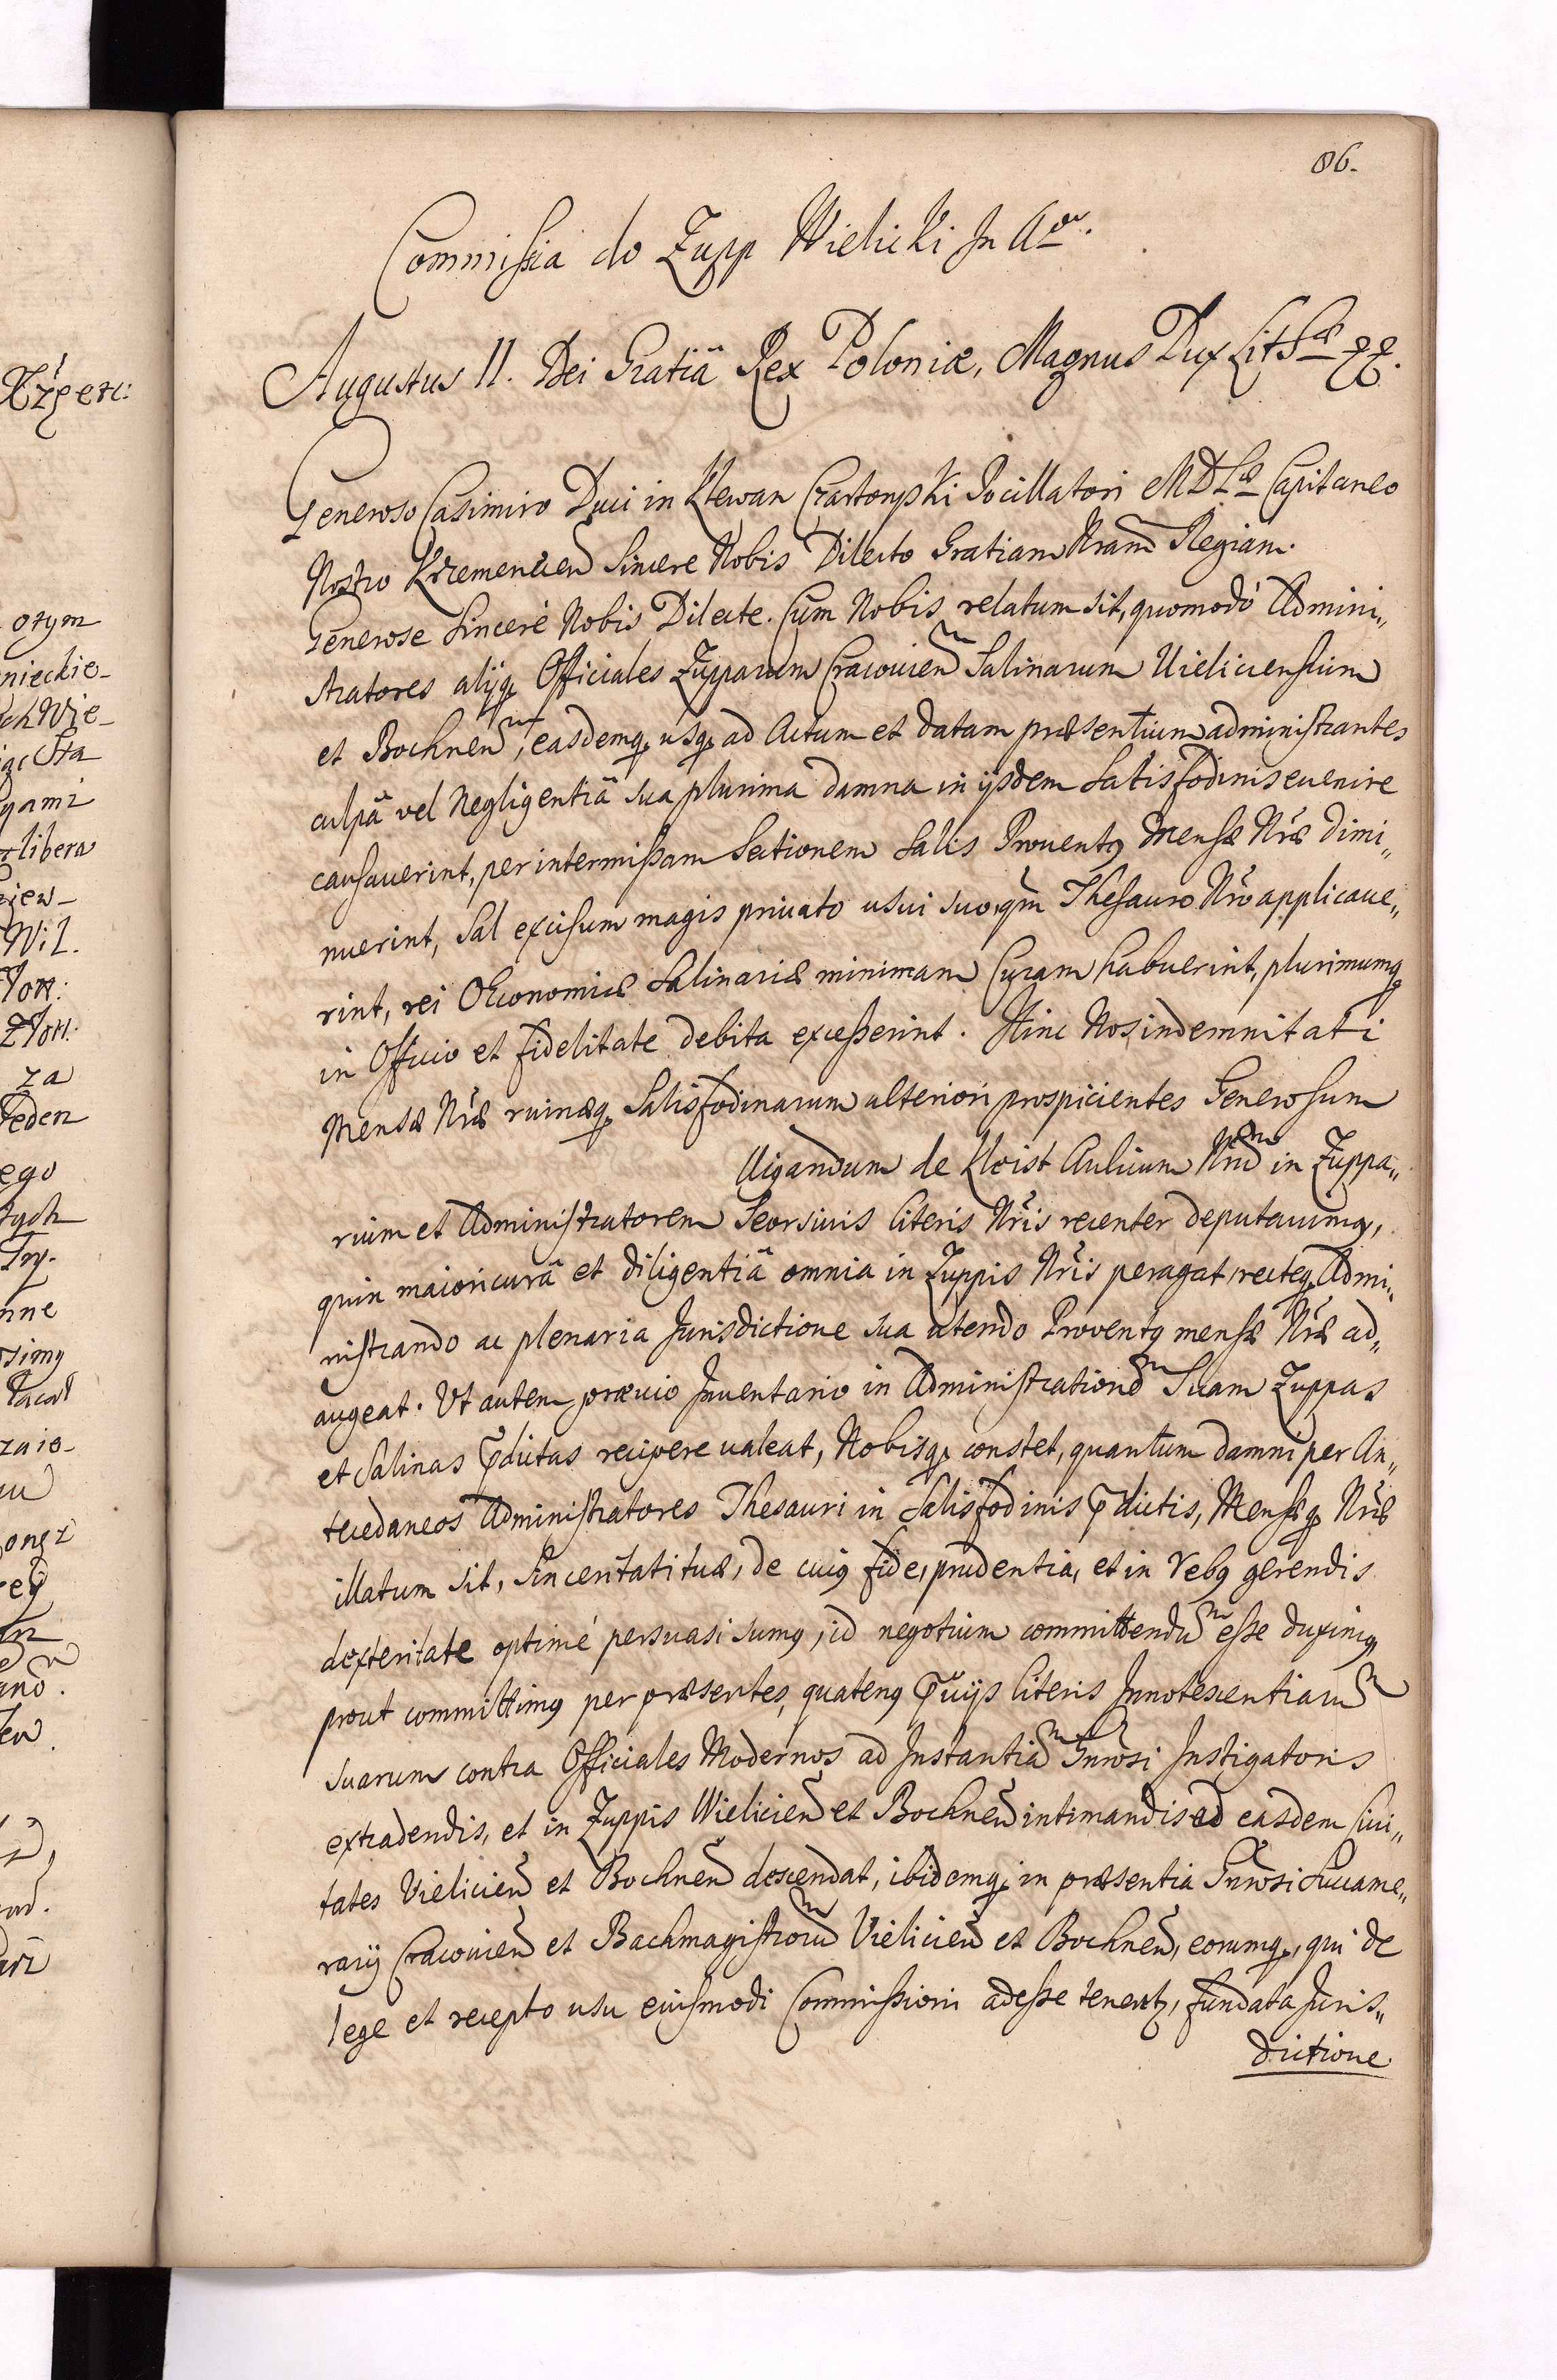 86.
Commissia do Zupp Wielicki In Aō.
Augustus II. Dei Gratiâ Rex Poloniæ, Magnus Dux Litt
Generoso Casimiro Duci in Klewan Czartoryski Pocillatori MDLæ Capitaneo
Nostro Krzemeneceñ Sincere Nobis Dilecto Gratiam Nram Regiam.
Generose Sinceré Nobis Dilecte. Cum Nobis relatum sit, quomodó Admini„
stratores alijq; Officiales Zupparum Cracovieñ Salinarum Vieliciensium
et Bochneñ, easdemq; usq; ad Actum et datam præsentium administrantes
culpâ vel negligentiâ sua plurima damna in ijsdem Salisfodinis evenire
causaverint, per intermissam Sectionem Salis Proventq Mensæ Nræ dimi„
nuerint, Sal excisum magis privato usui suo, qm̃ Thesauro Nro applicave„
rint, rei OEconomicæ Salinariæ minimam Curam habuerint, plurimumq;
in Officio et fidelitate debita excesserint. Hinc Nos indemnitati
Mensæ Nræ ruinæq; Salisfodinarum ulteriori prospicientes Generosum
Vigandum de Kleist Aulicum Nrum in Zuppa„
rium et Administratorem Seorsivis literis Nris recenter deputavimq,
quin maiori curâ et diligentiâ omnia in Zuppis Nris peragat, recteq; Admi„
nistrando ac plenaria Jurisdictione sua utendo Proventq mensæ Nræ ad„
augeat. Ut autem prævio Inventario in Administrationẽ Suam Zuppas
et Salinas p̃dictas recipere valeat, Nobisq; constet, quantum damni per An„
tecedaneos Administratores Thesauri in Salisfodinis p̃dictis, Mensæq; Nræ
illatum sit, Sinceritati tuæ, de cuiq fide, prudentia, et in rebq gerendis
dexteritate optimé persuasi sumq, id negotium committendũ esse duximq
prout committimq per præsentes, quatenq p̃vijs literis Innotescentiarũ
suarum contra Officiales Modernos ad Instantiã Gnrosi Instigatoris
extradendis, et in Zuppis Wielicieñ et Bochneñ intimandis ad easdem Civi„
tates Vielicieñ et Bochneñ descendat, ibidemq; in præsentia Gnrosi Succame„
rarij Cracovieñ et Bachmagistrorũ Vielicieñ et Bochneñ, eorumq;, qui de
lege et recepto usu eiusmodi Commissioni adesse tenentr, fundata Juris„
dictione